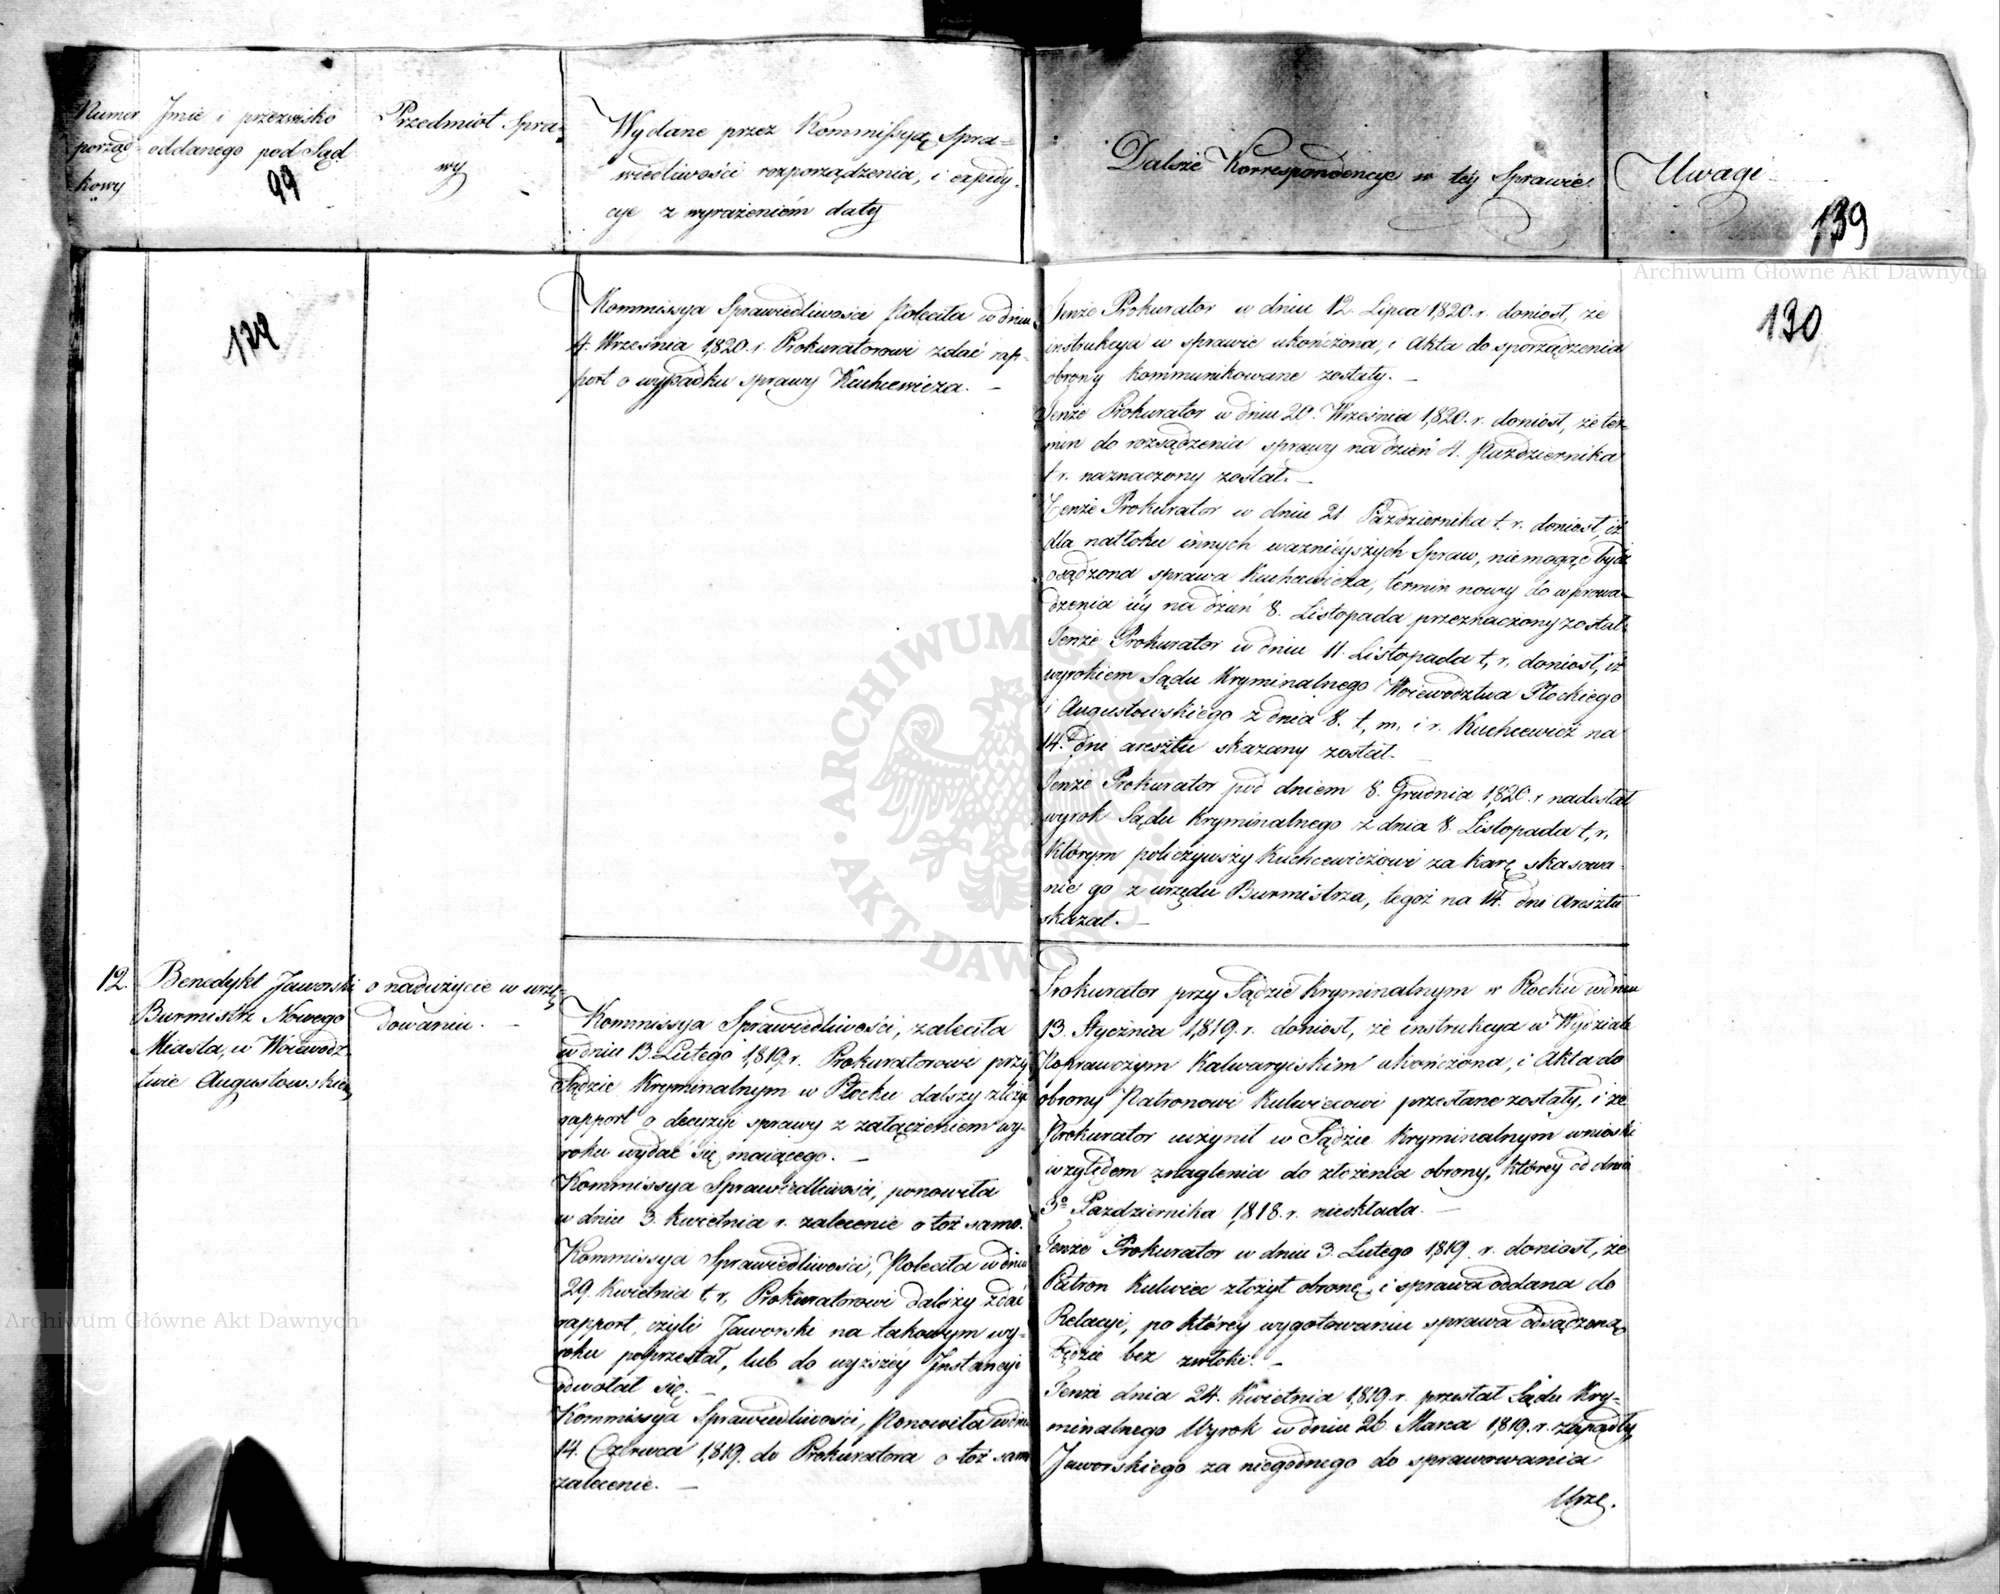 Numer
porząd
kowy
Jmie i przezwisko
oddanego pod Sąd
99
Przedmiot Spra-
wy
Wydane przez Kommissyą Spra-
wiedliwości rozporządzenia, i expedy-
cye z wyrażeniem daty
Dalsze Korrespondencye w tey Sprawie
Uwagi
139
Archiwum Główne Akt Dawnych
130
Kommissya Sprawiedliwości Poleciła w dniu
4. Września 1820. r. Prokuratorowi zdać rap-
port o wypadku sprawy Kuchcewicza. —
Tenże Prokurator w dniu 12. Lipca 1820. r. doniosł, że
instrukcya w sprawie ukończona, i Akta do sporządzenia
obrony kommunikowane zostały. —
Tenże Prokurator w dniu 20. Września 1820. r. doniosł, że ter-
min do rozsądzenia sprawy na dzień 4. Października
t. r. naznaczony został. —
Tenże Prokurator w dniu 21 Października t. r. doniosł, iż
dla natłoku innych ważnieyszych Spraw, nie mogąc bydź
osądzona sprawa Kuchcewicza, termin nowy do wprowa-
dzenia iéy na dzień 8. Listopada przeznaczony został.
Tenże Prokurator w dniu 11. Listopada t. r. doniosł, iż
wyrokiem Sądu Kryminalnego Woiewodztwa Płockiego
i Augustowskiego z dnia 8. t. m. i r. Kuchcewicz na
14. dni aresztu skazany został. —
Tenże Prokurator pod dniem 8. Grudnia 1820. r nadesłał
wyrok Sądu Kryminalnego z dnia 8. Listopada t. r.
którym policzywszy Kuchcewiczowi za karę skasowa-
nie go z urzędu Burmistrza, tegoż na 14. dni Aresztu
skazał. —
ARCHIWUM GŁÓWNE AKT DAWNYCH
12.
Benedykt Jaworski
Burmistrz Nowego
Miasta, w Woiewodz-
twie Augustowskiem
o nadużycie w urzę-
dowaniu. —
Kommissya Sprawiedliwości, zaleciła
w dniu 13. Lutego 1819. r. Prokuratorowi przy
Sądzie Kryminalnym w Płocku dalszy złożyć
rapport o decyzyi sprawy z załączeniem wy-
roku wydać się maiącego. —
Kommissya Sprawiedliwości, ponowiła
w dniu 3. Kwietnia r. zalecenie o toż samo.
Kommissya Sprawiedliwości, Poleciła w dniu
29. Kwietnia t. r. Prokuratorowi dalszy zdać
rapport, czyli Jaworski na takowym wy-
roku poprzestał, lub do wyższéy Instancyi
odwołał się. —
Kommissya Sprawiedliwości, Ponowiła w dniu
14. Czerwca 1819. do Prokuratora o toż samo
zalecenie. —
Prokurator przy Sądzie Kryminalnym w Płocku w dniu
13. Stycznia 1819. r. doniosł, że instrukcya w Wydziale
Poprawczym Kalwaryiskim ukończona, i Akta do
obrony Patronowi Kulwiecowi przesłane zostały, i że
Prokurator uczynił w Sądzie Kryminalnym wnioski
względem znaglenia do złożenia obrony, którey od dnia
3º Października 1818. r. nieskłada. —
Tenże Prokurator w dniu 3. Lutego 1819. r. doniosł, że
Patron Kulwiec złożył obronę, i sprawa oddana do
Relacyi, po którey wygotowaniu sprawa odsądzoną
będzie bez zwłoki. —
Tenże dnia 24. Kwietnia 1819. r. przesłał Sądu Kry-
minalnego Wyrok w dniu 26. Marca 1819. r. zapadły,
Jaworskiego za niegodnego do sprawowania
Urzę.
Archiwum Główne Akt Dawnych